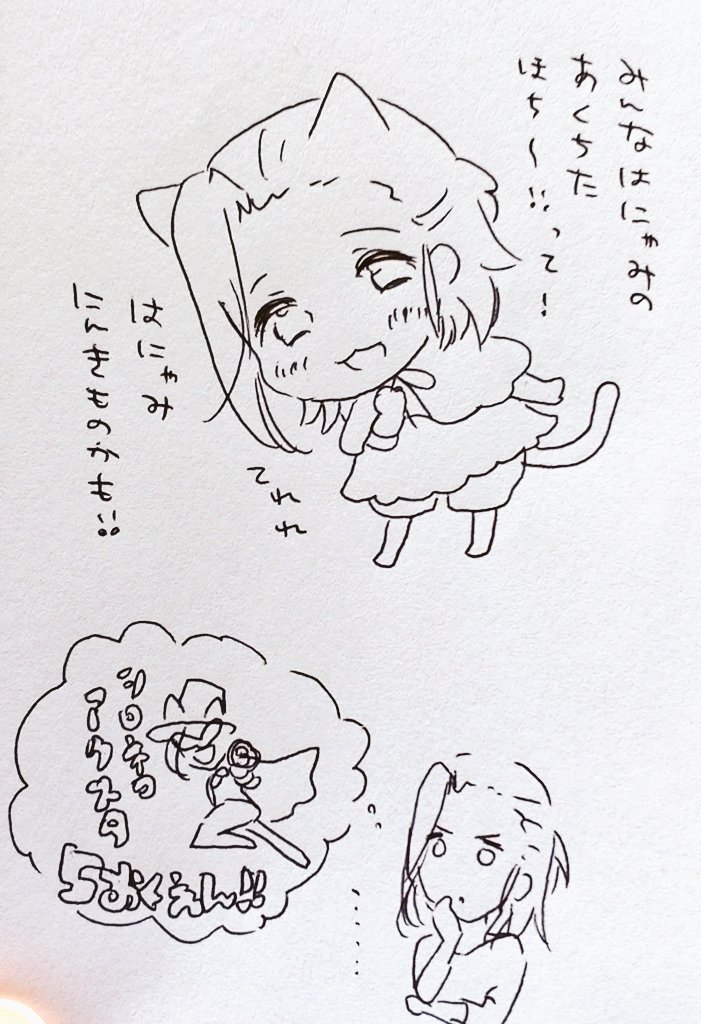 みんなはにゃみの
あくちた
ほち〜!!って!
はにゃみ
にんきものかも!!
てれれ
シロネコ
アクスタ
5おくえん!!
……